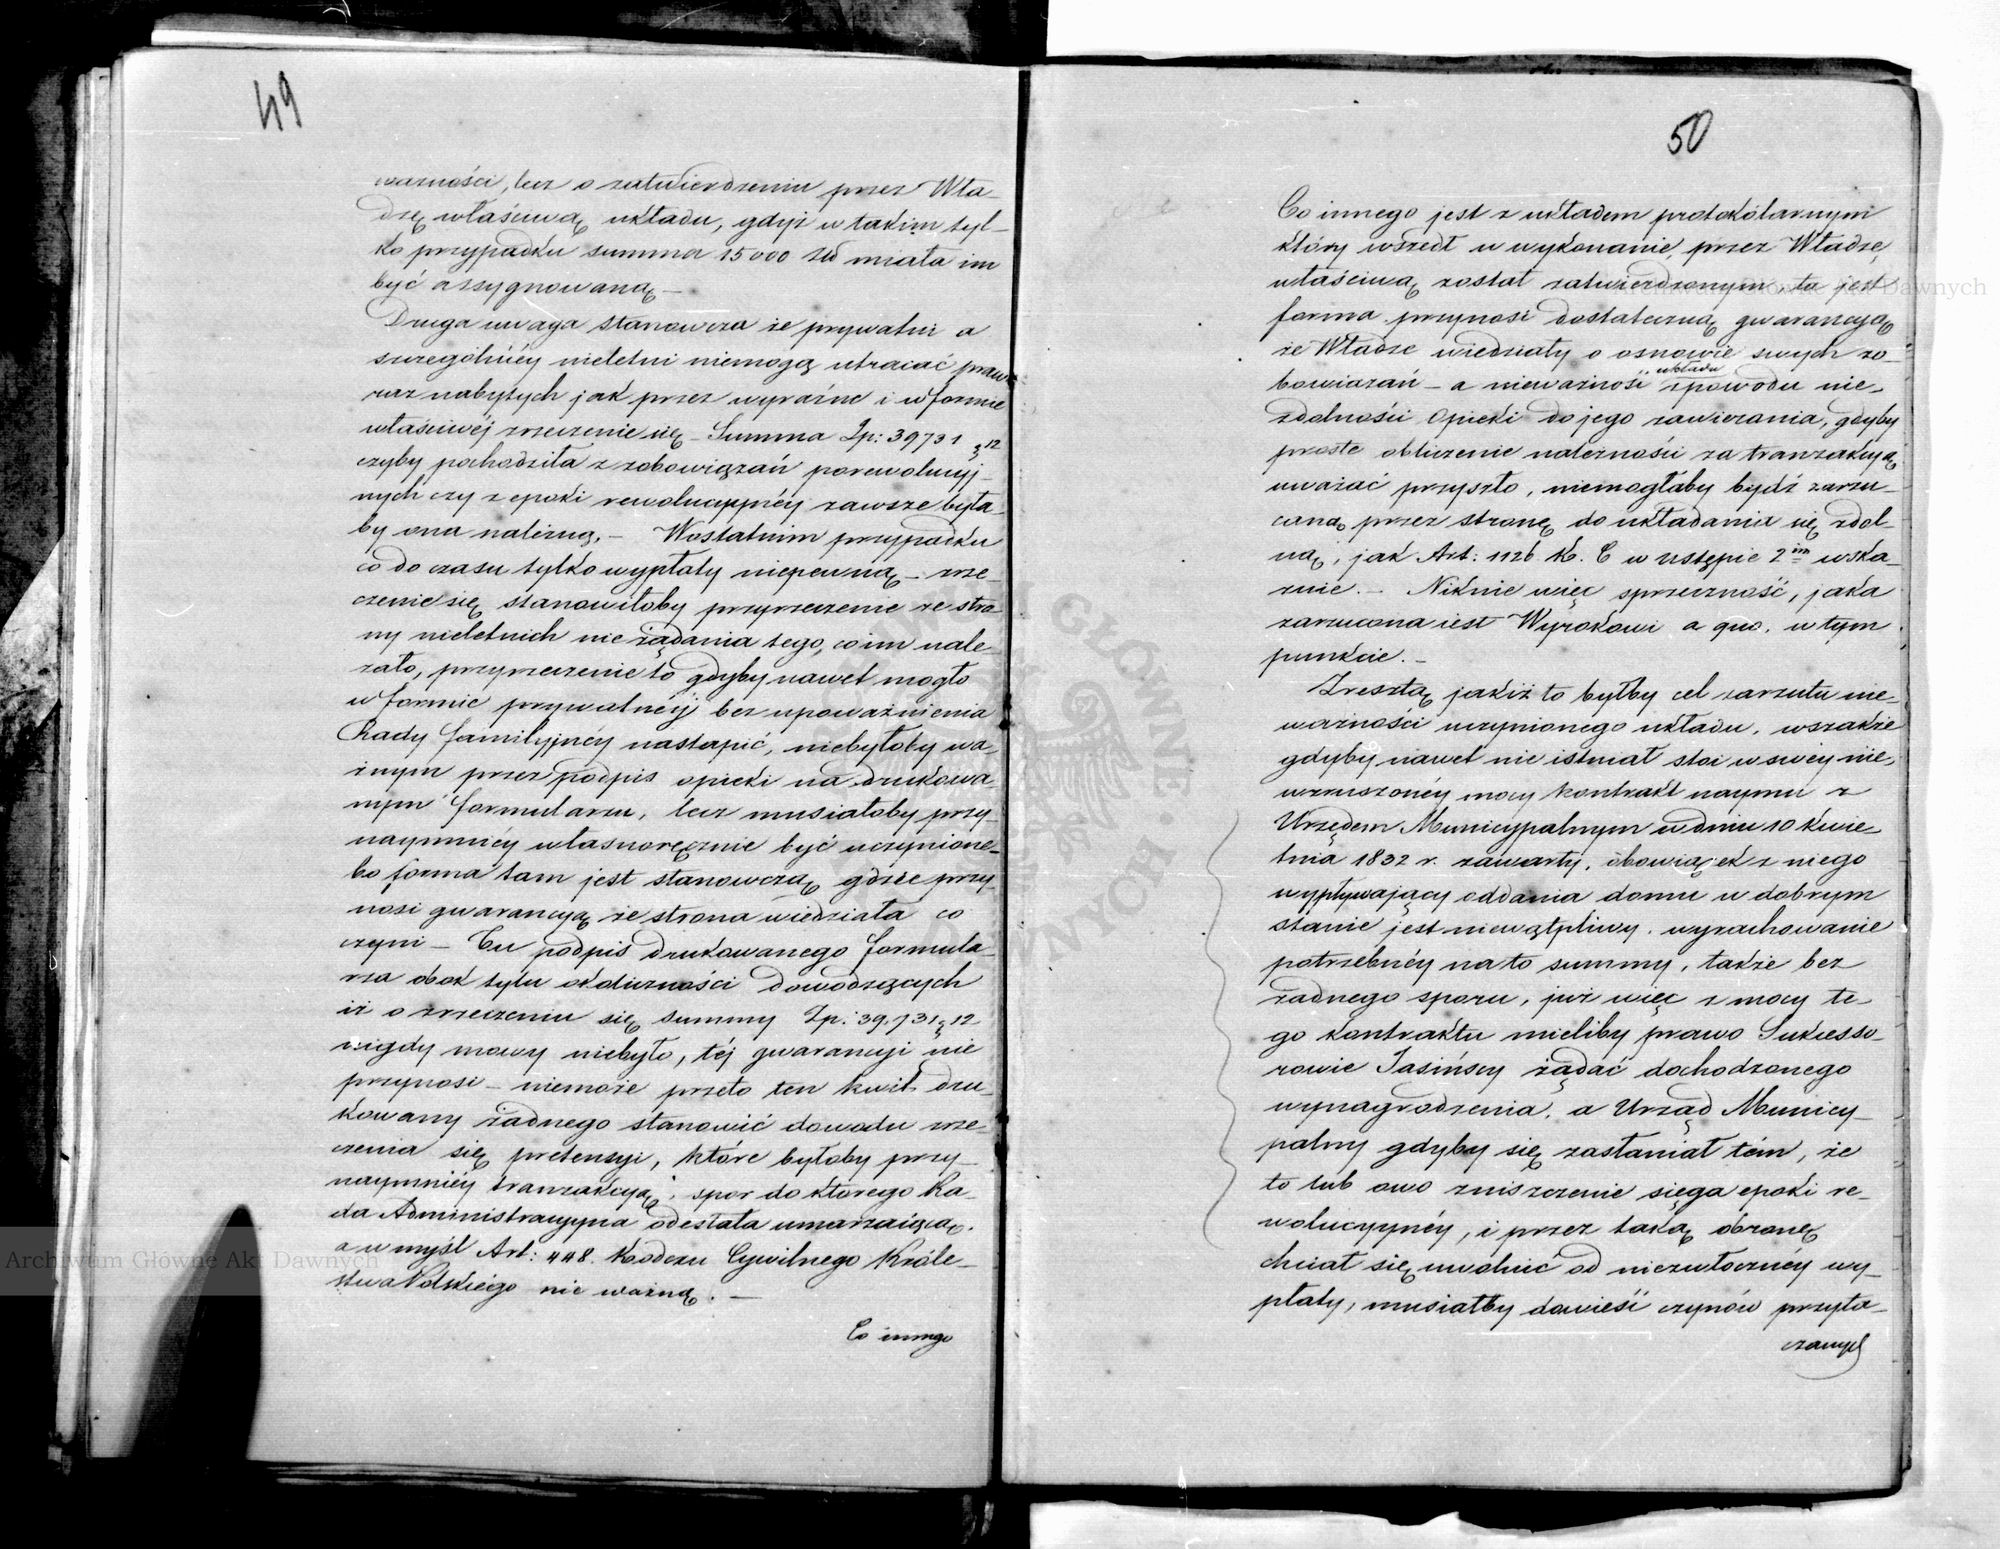 49
ważności, lecz o zatwierdzeniu przez Wła-
dzę właściwą układu, gdyż w takim tyl-
ko przypadku summa 15000 Złł miała im
być assygnowaną —
Druga uwaga stanowcza że prywatni a
szczególniéy nieletni niemogą utracać praw
raz nabytych jak przez wyraźne i w formie
właściwéj zrzeczenie się – Summa Zp: 39731 g 12
czyby pochodziła z zobowiązań porewolucyj-
nych czy z epoki rewolucyjnéy zawsze była-
by ona należną. – W ostatnim przypadku
co do czasu tylko wypłaty niepewną – zrze-
czenie się stanowiłoby przyrzeczenie ze stro
ny nieletnich nie żądania tego, co im nale-
żało, przyrzeczenie to gdyby nawet mogło
w formie prywatnéj bez upoważnienia
Rady familyjnéy nastąpić, niebyłoby wa-
żnym przez podpis opieki na drukowa-
nym formularzu, lecz musiałoby przy-
naymniéy własnoręcznie być uczynione-
bo forma tam jest stanowczą gdzie przy-
nosi gwarancyą że strona wiedziała co
czyni – Tu podpis drukowanego formula-
rza obok tylu okoliczności dowodzących
iż o zrzeczeniu się Summy Zp: 39.731 g 12
nigdy mowy niebyło, téj gwarancji nie
przynosi – niemoże przeto ten kwit dru-
kowany żadnego stanowić dowodu zrze-
czenia się pretensyi, które byłoby przy-
naymniéy tranzakcyą, spor do którego Ra-
da Administracyjna odesłała umarzaiącą.
a w myśl Art: 448. Kodexu Cywilnego Króle-
stwa Polskiego nie ważną. —
Co innego
50
Co innego jest z układem protokólarnym
który wszedł w wykonanie, przez Władzę
właściwą został zatwierdzonym, ta jest
forma przynosi dostateczną gwarancyą
że Władze wiedziały o osnowie swych zo-
bowiązań – a nieważność układu zpowodu nie-
zdolności Opieki do jego zawierania, gdyby
proste obliczenie należności za tranzakcyą
uważać przyszło, niemogłaby bydź zarzu-
caną przez stronę do układania się zdol-
ną, jak Art: 1126 K. C w ustępie 2im wska-
zuie. – Niknie więc sprzeczność, jaka
zarzucona iest Wyrokowi a quo. w tym
punkcie. –
Zresztą jakiż to byłby cel zarzutu nie-
ważności uczynionego układu, wszakże
gdyby nawet nie istniał stoi w swéy nie-
wzruszonéy mocy kontrakt naymu z
Urzędem Municypalnym w dniu 10 Kwie-
tnia 1832 r. zawarty, obowiązek z niego
wypływający oddania domu w dobrym
stanie jest niewątpliwy, wyrachowanie
potrzebnéy na to summy, także bez
żadnego sporu, już więc z mocy te-
go kontraktu mieliby prawo Sukcesso-
rowie Jasińscy żądać dochodzonego
wynagrodzenia, a Urząd Municy-
palny gdyby się zasłaniał tém, że
to lub owo zniszczenie sięga epoki re-
wolucyynéy, i przez taką obronę
chciał się uwolnić od niezwłocznéy wy-
płaty, musiałby dowieść czynów przyto-
czanych
Archiwum Główne Akt Dawnych
Archiwum Główne Akt Dawnych